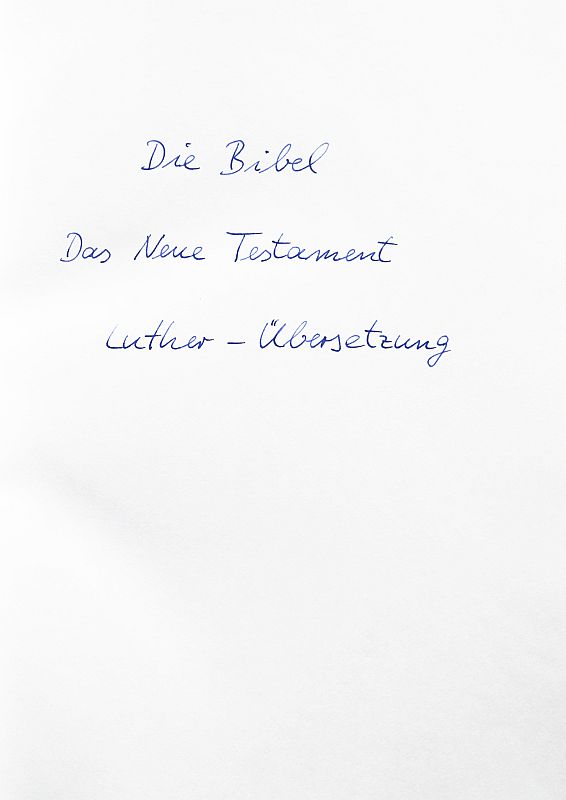 Die Bibel
Das Neue Testament
Luther - Übersetzung